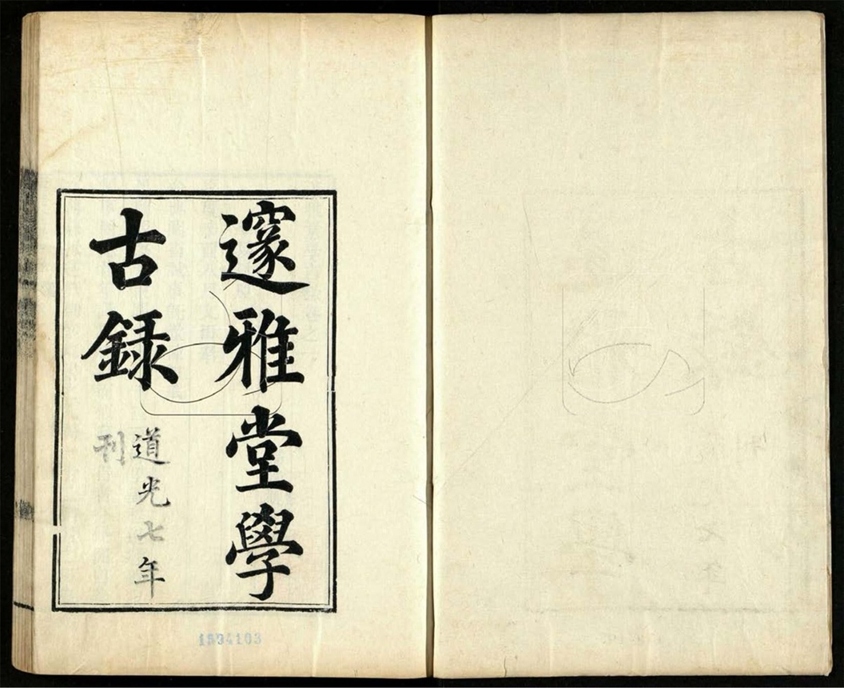 邃雅堂學
古録
道光七年
刊
1534103